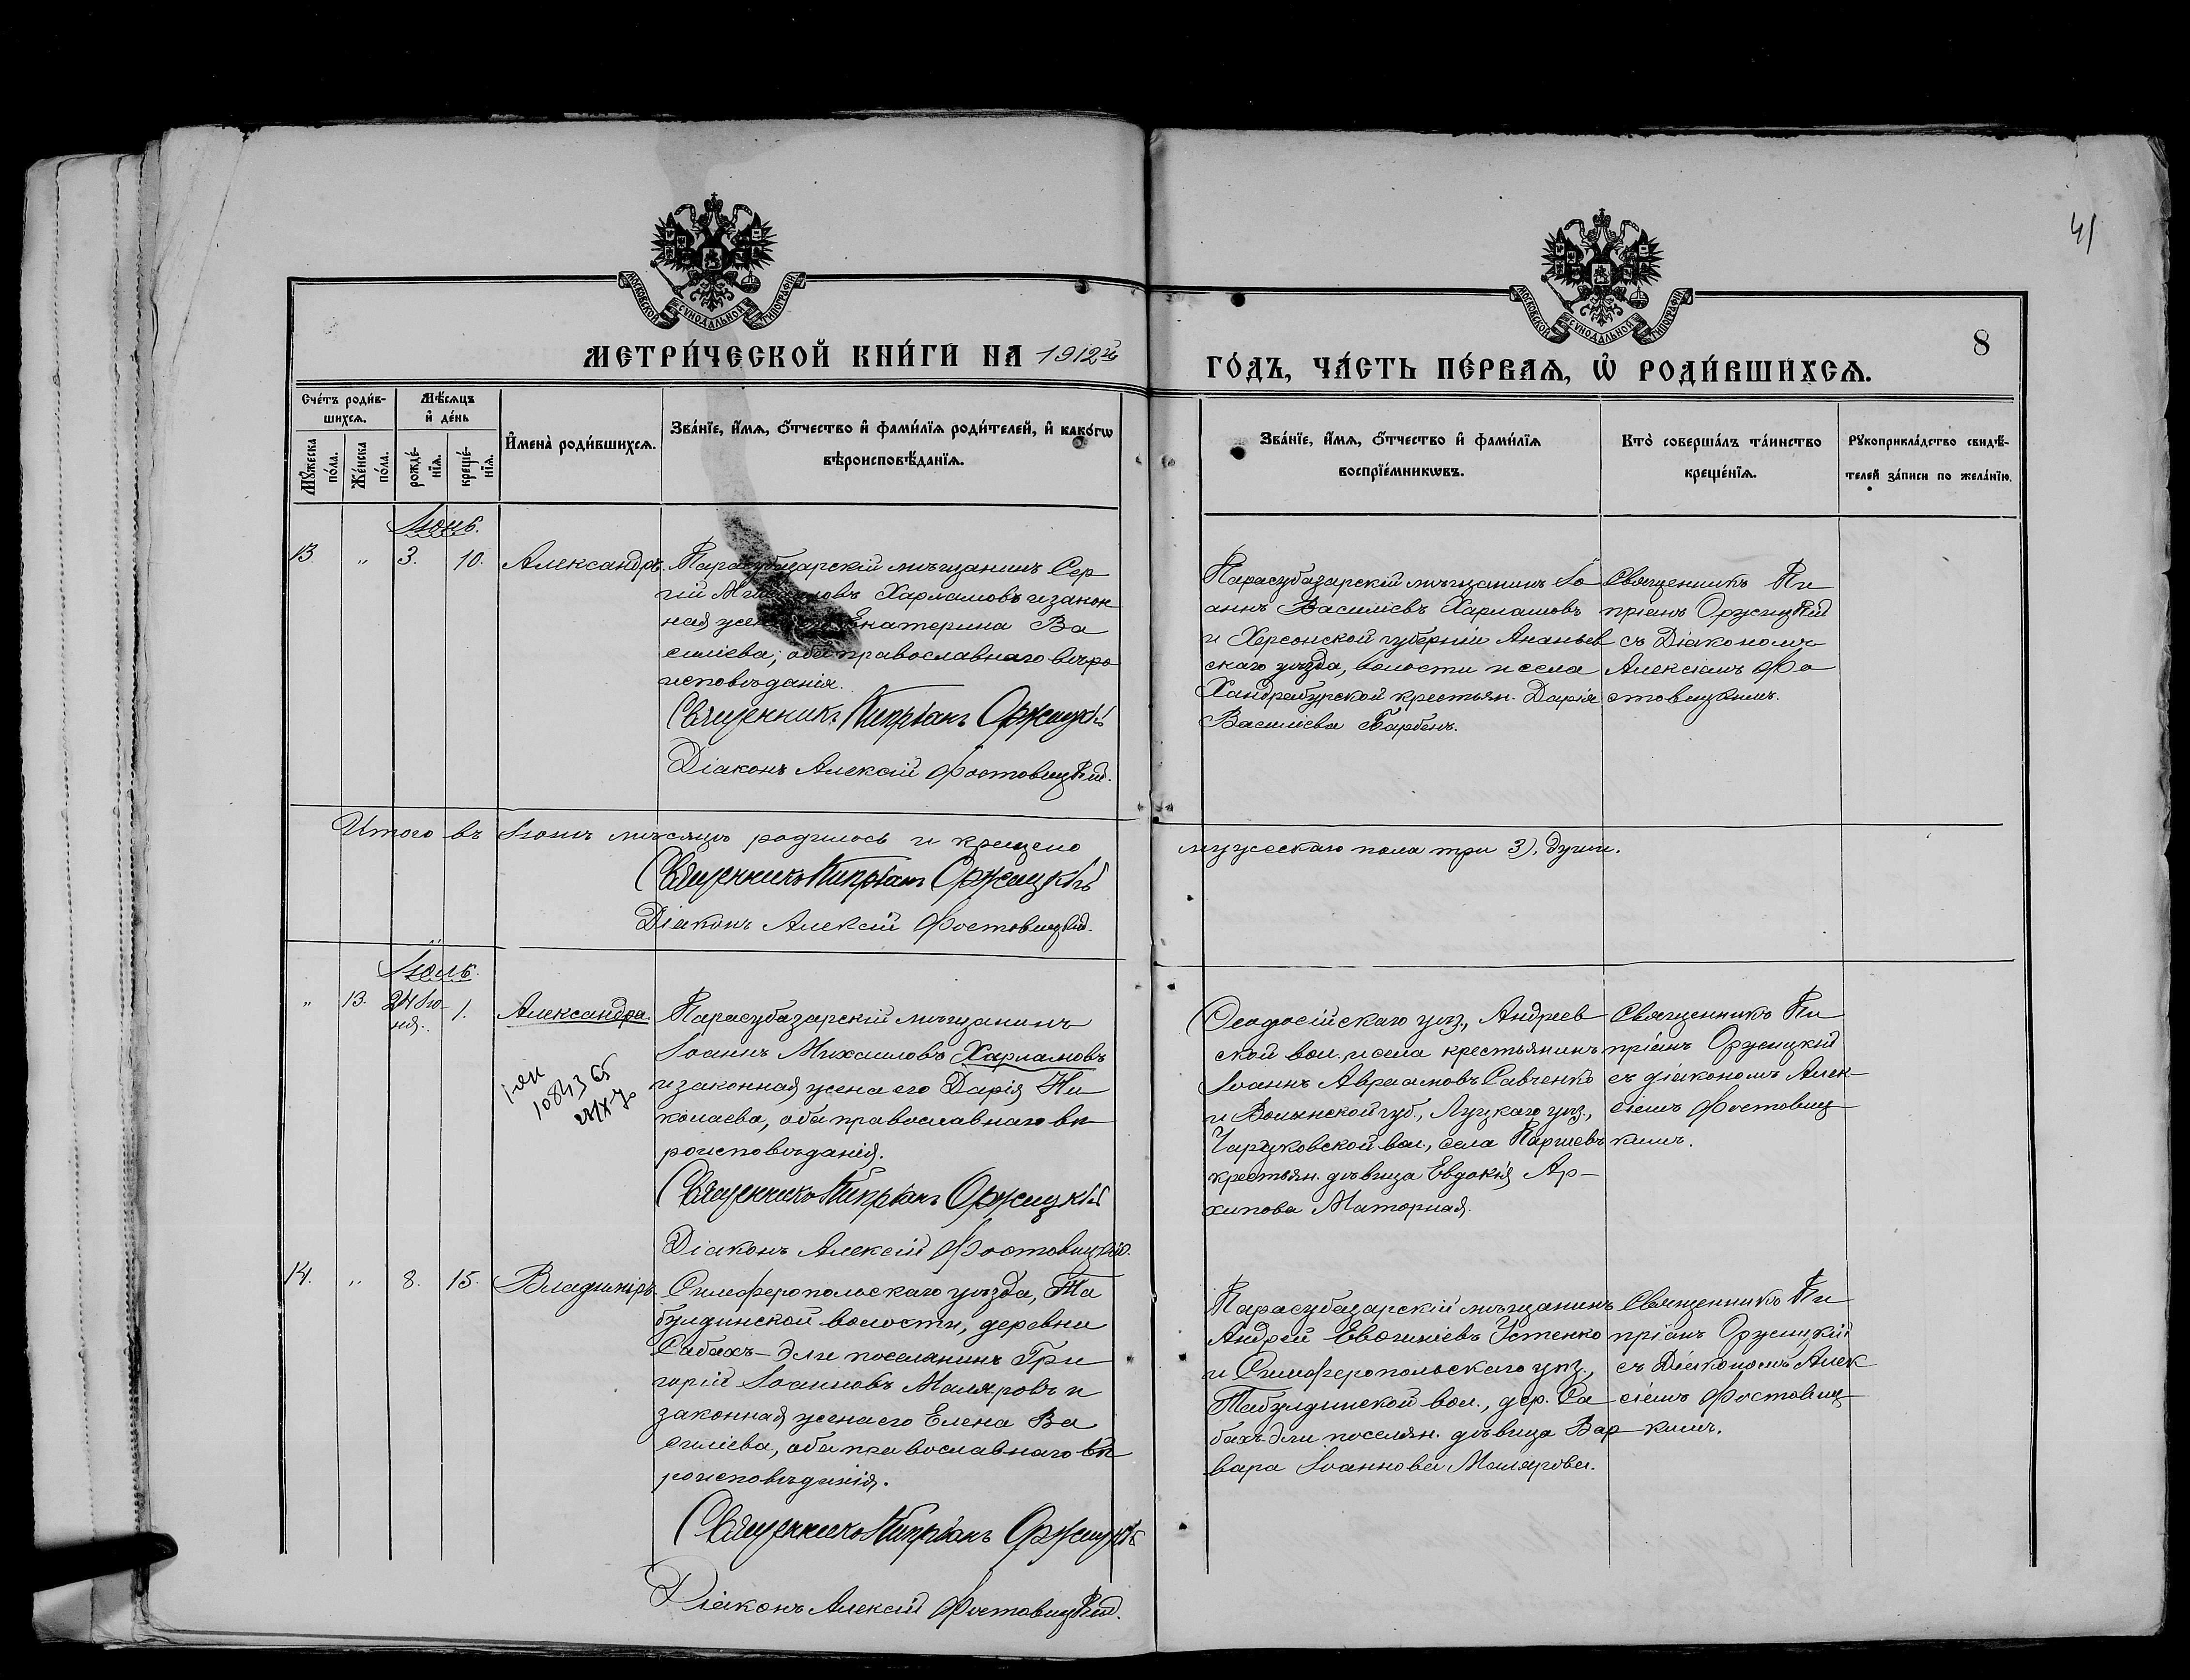 41
МОСКОВСКОЙ СѴНОДАЛЬНОЙ ТИПОГРАФІИ
МОСКОВСКОЙ СѴНОДАЛЬНОЙ ТИПОГРАФІИ
8
МЕТРИ́ЧЕСКОЙ КНИ́ГИ НА 1912й
ГО́ДЪ, ЧА́СТЬ ПЕ́РВАѦ, Ѡ҆ РОДИ́ВШИХСѦ.
Сче́тъ роди́в-
шихсѧ.
Мꙋ́жеска по́ла.
Же́нска по́ла.
Мѣ́сѧцъ
и҆ де́нь
рожде́-
нїѧ.
креще́-
нїѧ.
И҆мена̀ роди́вшихсѧ.
Зва́нїе, и҆́мѧ, ѻ҆́тчество и҆ фами́лїѧ роди́телей, и҆ како́гѡ
вѣроисповѣ́данїѧ.
Зва́нїе, и҆́мѧ, ѻ҆́тчество и҆ фами́лїѧ
воспрїе́мникѡвъ.
Кто̀ соверша́лъ та́инство
креще́нїѧ.
Рꙋкоприкла́дство свидѣ́-
телей за́писи по жела́нїю.
Іюнь.
13. " 3. 10. Александръ.
Карасубазарскій мѣщанинъ Сер
гій Харламовъ и закон
ная Екатерина Ва
силіева; оба православнаго вѣро
исповѣданія.
Священникъ Кипріанъ Оржицкій
Діаконъ Алексій Фостовицкій.
Карасубазарскій мѣщанинъ Іо
аннъ Василіевъ Харламовъ
и Херсонской губерніи Ананьев
скаго уѣзда, волости и села
Хандрабурской крестьян. Дарія
Василіева Барбенъ.
Священникъ Ки
пріанъ Оржицкій
съ Діакономъ
Алексіемъ Фо
стовицкимъ.
Итого въ Іюнѣ мѣсяцѣ родилось и крещено
мужескаго пола три 3), души.
Священникъ Кипріанъ Оржицкій
Діаконъ Алексій Фостовицкій.
Іюль.
" 13. 24 Ію-
ня. 1. Александра.
10843
Карасубазарскій мѣщанинъ
Іоаннъ Михаиловъ Харламовъ
и законная жена его Дарія Ни
колаева, оба православнаго вѣ
роисповѣданія.
Священникъ Кипріанъ Оржицкій
Діаконъ Алексій Фостовицкій.
Ѳеодосійскаго уѣз., Андреев
ской вол. и села крестьянинъ
Іоаннъ Авраамовъ Савченко
и Волынской губ., Луцкаго уѣз.,
Чаруковской вол., села
крестьян. дѣвица Евдокія Ар-
хипова Маторная.
Священникъ Ки
пріанъ Оржицкій
съ діакономъ Алек-
сіемъ Фостовиц-
кимъ.
14. " 8. 15. Владиміръ.
Симферопольскаго уѣзда, Та
булдинской волости, деревни
Сабахъ-Эли поселянинъ Гри
горій Іоанновъ Маляровъ и
законная жена его Елена Ва
силіева, оба православнаго вѣ
роисповѣданія.
Священникъ Кипріанъ Оржицкій
Діаконъ Алексій Фостовицкій.
Карасубазарскій мѣщанинъ
Андрей Евѳиміевъ Устенко
и Симферопольскаго уѣз.,
Табулдинской вол., дер. Са
бахъ-Эли поселян. дѣвица Вар
вара Іоаннова Малярова.
Священникъ Ки
пріанъ Оржицкій
съ Діакономъ Алек
сіемъ Фостовиц-
кимъ.